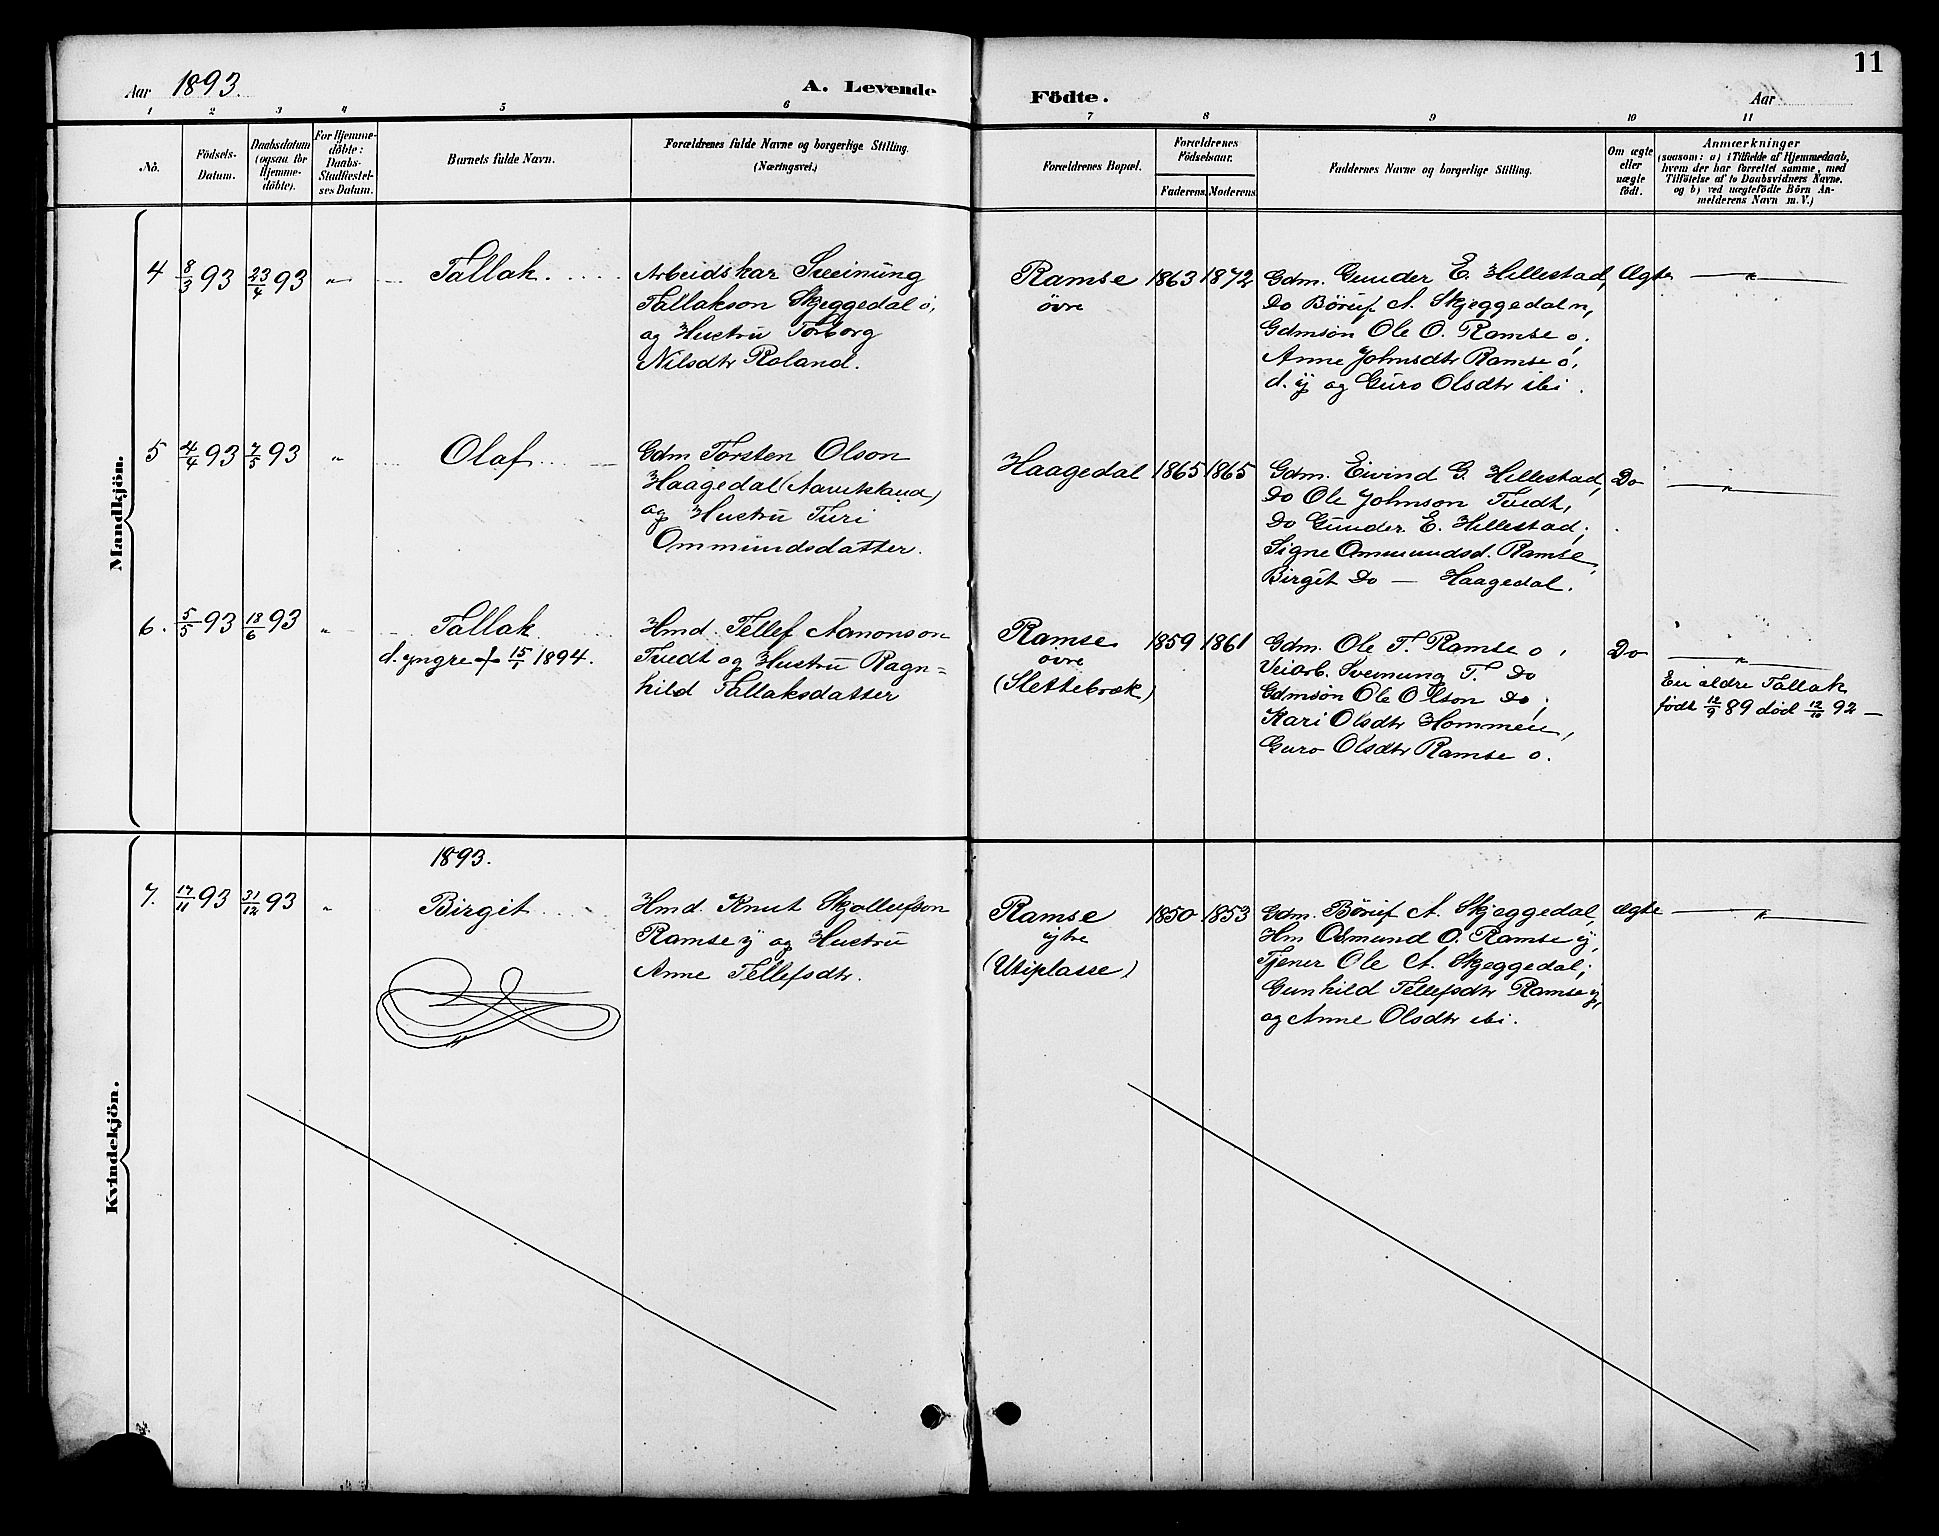 11
Aar 1893.
A. Levende
Födte.
Aar
1 2 3 4 5 6 7 8 9 10 11
No.
Födsels-
Datum.
Daabsdatum
(ogsaa for
Hjemme-
döbte).
For Hjemme-
döbte:
Daabs-
Stadfæstel-
ses Datum.
Barnets fulde Navn.
Forældrenes fulde Navne og borgerlige Stilling.
(Næringsvei.)
Forældrenes Bopæl.
Forældrenes
Födselsaar.
Faderens. Moderens.
Faddernes Navne og borgerlige Stilling.
Om ægte
eller
uægte
födt.
Anmærkninger
(saasom: a) i Tilfælde af Hjemmedaab,
hvem der har forrettet samme, med
Tilföielse af to Daabsvidners Navne.
og b) ved uægtefödte Börn An-
melderens Navn m. V.)
Mandkjön.
4 8/3 93 23/4 93 " Tallak.
Arbeidskar Sveinung
Tallakson Skjeggedal ö,
og Hustru Torborg
Nilsdtr Roland.
Ramse
övre
1863 1872
Gdm. Gunder E. Hillestad,
Do Böruf A. Skjeggedal n,
Gdmsön Ole O. Ramse o,
Anne Johnsdtr Ramse ö,
d. y og Guro Olsdtr ibi.
Ægte "
5 4/4 93 7/5 93 " Olaf
Gdm Torsten Olson
Haagedal (Navitsland)
og Hustru Turi
Ommundsdatter.
Haagedal
1865 1865
Gdm. Eivind G. Hillestad,
Do Ole Johnson Tvedt,
Do Gunder E. Hillestad;
Signe Ommundsd. Ramse,
Birgit Do — Haagedal.
Do "
6. 5/5 93 18/6 93 " Tallak
d. yngre † 15/1 1894.
Hmd. Tellef Aanonson
Tvedt og Hustru Ragn=
hild Tallaksdatter
Ramse
övre
(Slettebræk)
1859 1861
Gdm. Ole T. Ramse o,
Veiarb. Sveinung T. Do
Gdmsön Ole Olson Do;
Kari Olsdtr Hommen,
Guro Olsdtr Ramse o.
Do "
En ældre Tallak
født 12/9 89 død 12/10 92 —
Kvindekjön.
1893.
7. 17/11 93 31/12 93 " Birgit
Hmd. Knut Skjollufson
Ramse y og Hustru
Anne Tellefsdtr.
Ramse
ytre
(Utiplasse)
1850 1853
Gdm. Böruf A. Skjeggedal,
Hm Osmund O. Ramse y,
Tjener Ole A. Skjeggedal;
Gunhild Tellefsdtr Ramse y,
og Anne Olsdtr ibi.
ægte "